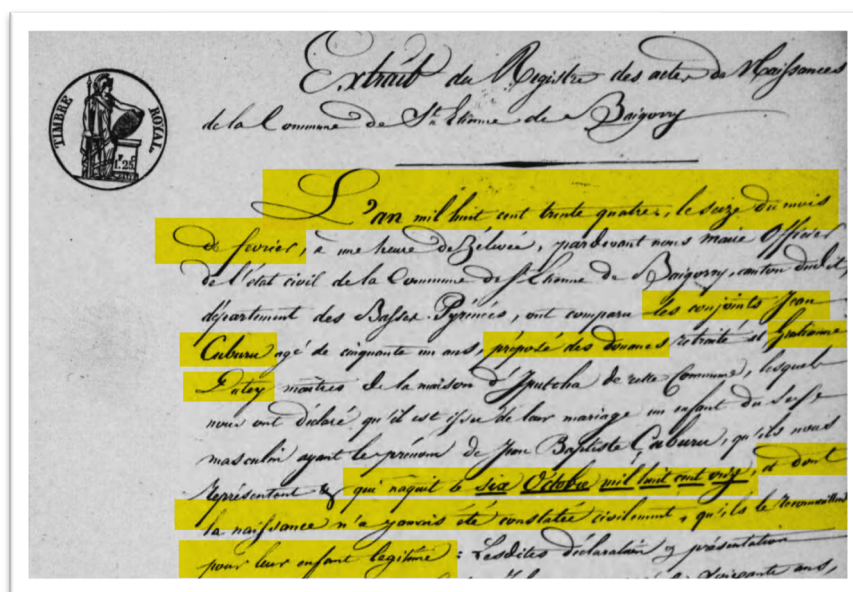 TIMBRE ROYAL
1.25
Extrait du Registre des actes de Naissances
de la Commune de St Etienne de Baigorry
L'an mil huit cent trente quatre, le seize du mois
de fevrier, à une heure de rélevée, pardevant nous maire officier
de l'état civil de la Commune de St Etienne de Baigorry, canton dudit,
département des Basses Pyrénées, ont comparu les conjoints Jean
Caburu agé de cinquante un ans, préposé des douanes retraité et Gratianne
maitres de la maison d' de cette Commune, lesquels
nous ont déclaré qu'il est issu de leur mariage un enfant du sexe
masculin ayant le prénom de Jean Baptiste Caburu, qu'ils nous
représentent & qui naquit le six Octobre mil huit cent onze, et dont
la naissance n'a jamais été constatée civilement, qu'ils le reconnaissent
pour leur enfant légitime : Lesdites déclaration & présentation
ans,